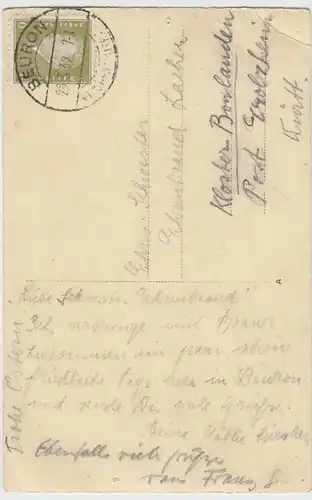 BEURON
Ehrw. Schwester
Ehrentraud
Kloster Bonlanden
Post Erolzheim
Württ.
Liebe Schwester Ehrentraud!
Ich verbringe mit Franz
zusammen ein paar schöne
friedliche Tage hier in Beuron
und sende Dir viele Grüsse.
Deine Käthe
Ebenfalls viele Grüsse
von Franz
Frohe Ostern!
A